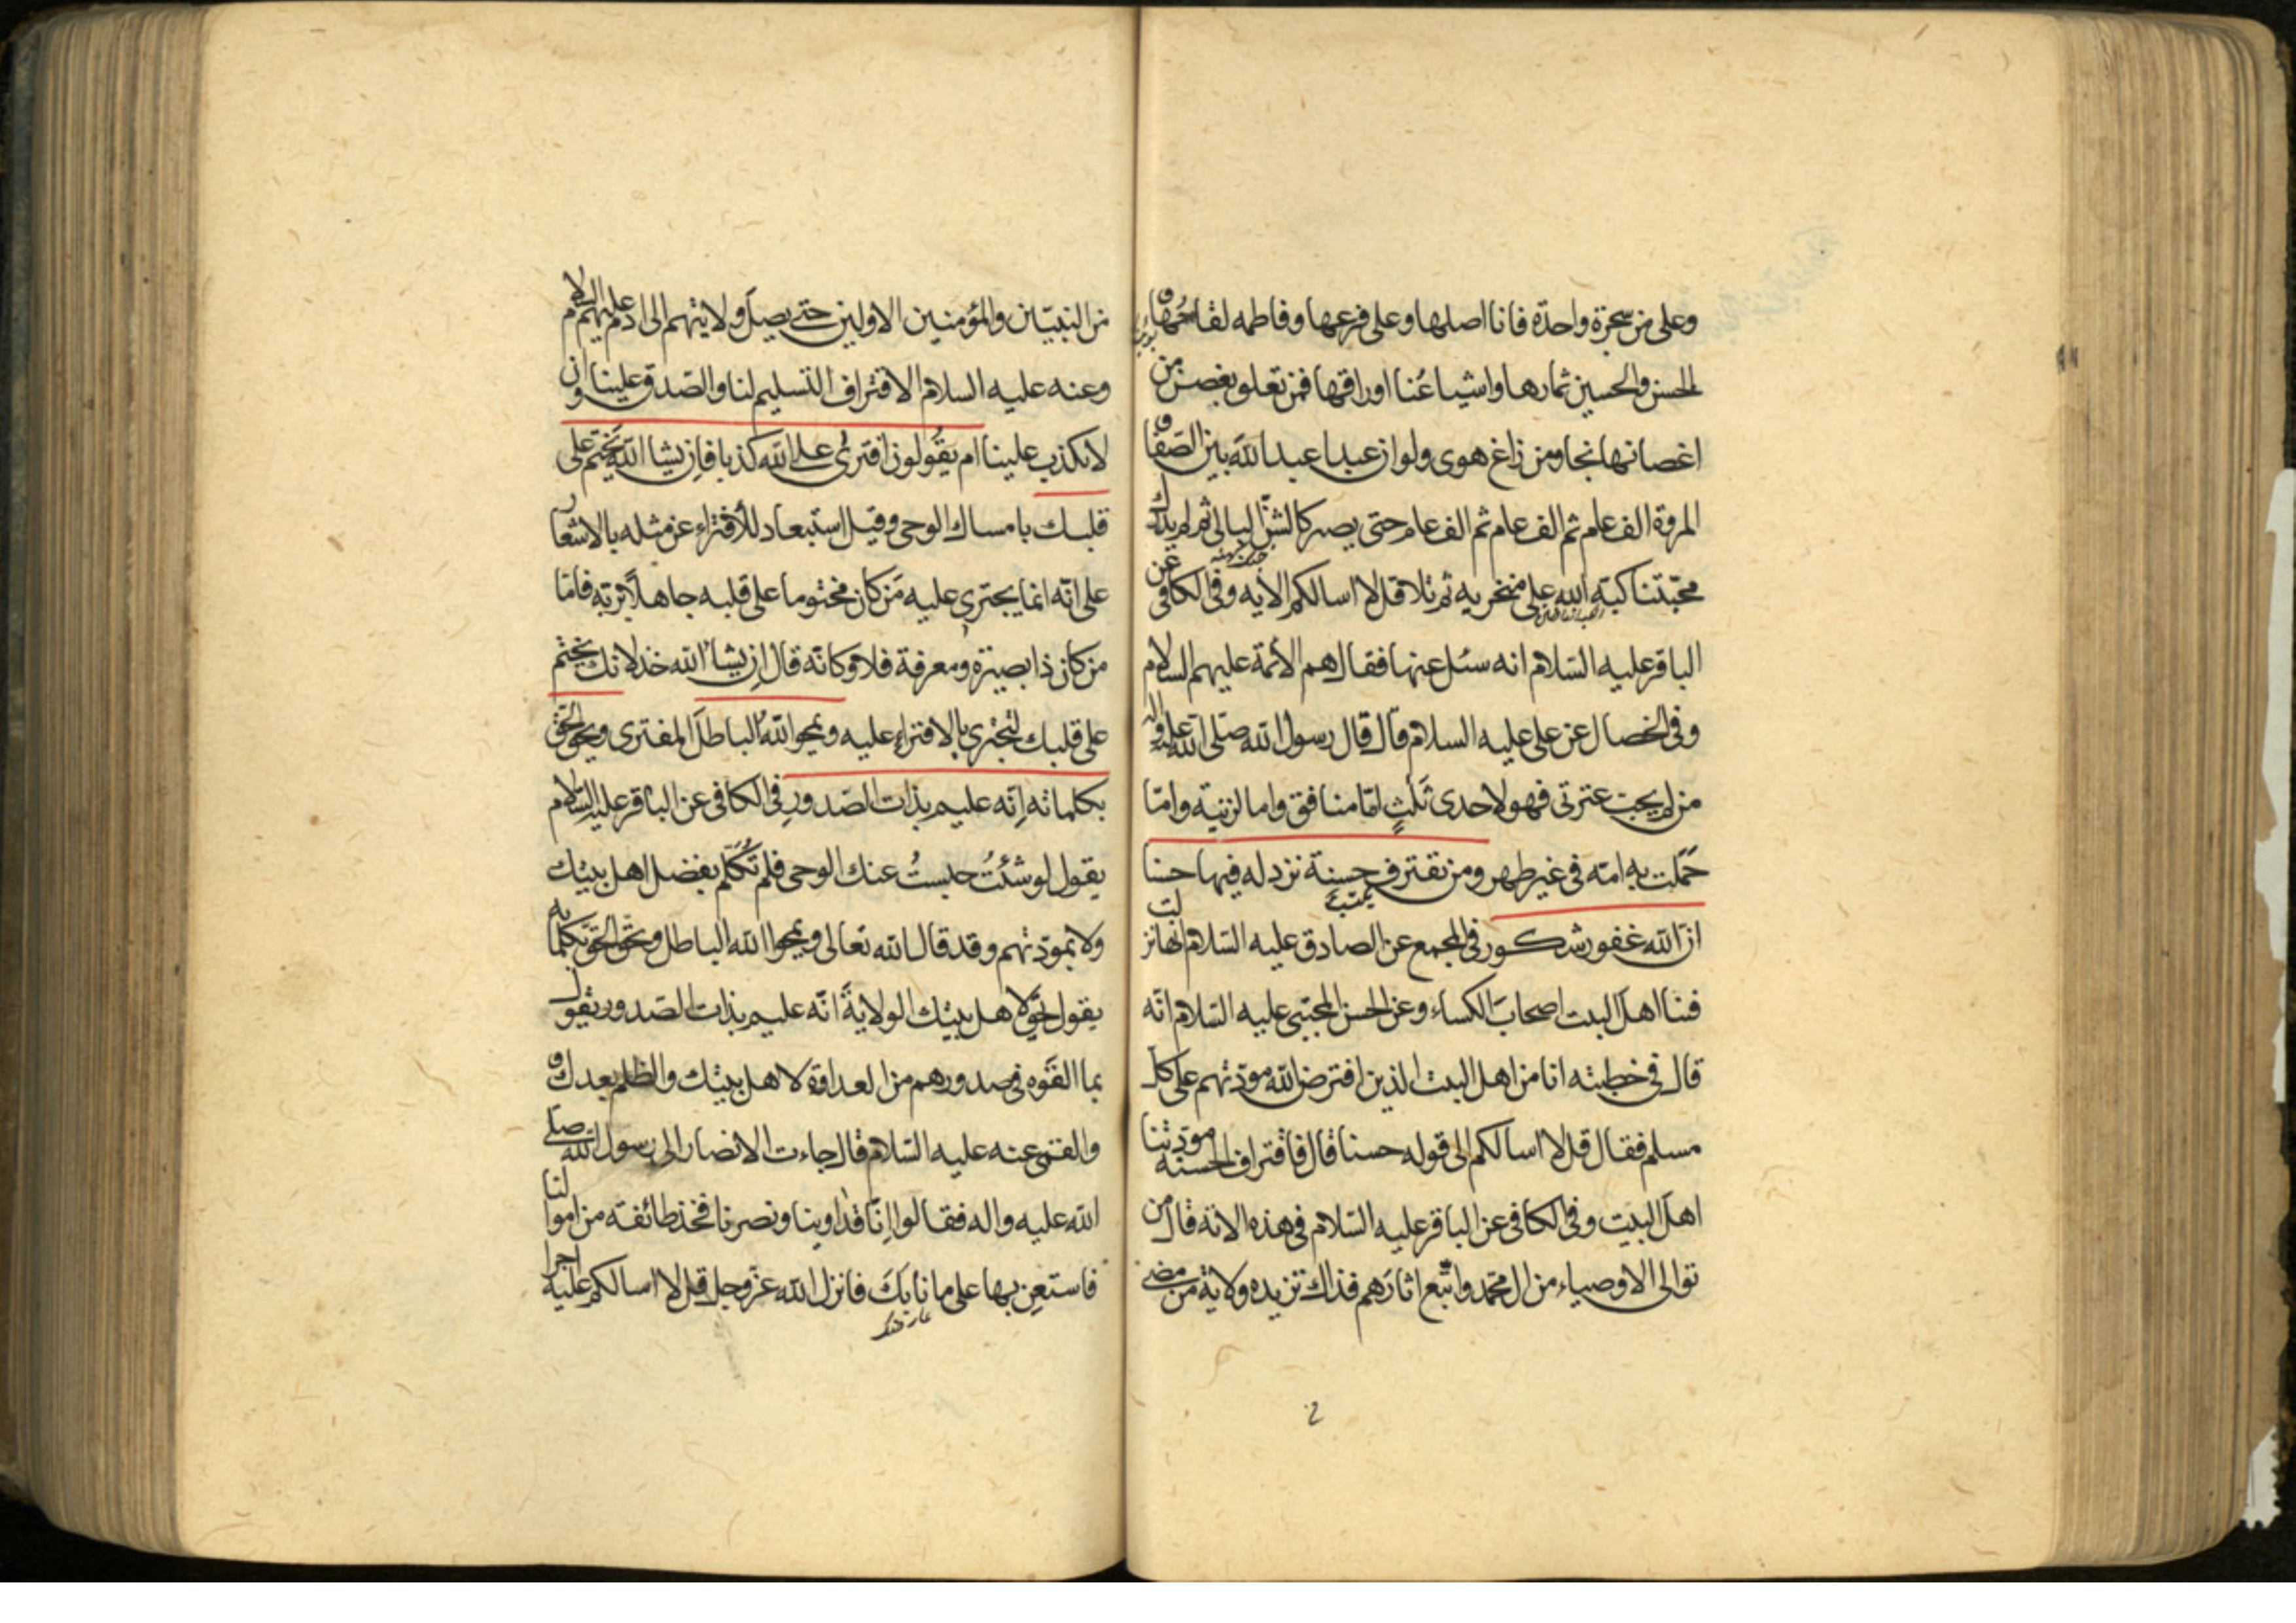 وعلی من شجرة واحدة فانا اصلها وعلی فرعها وفاطمه لقاحها و
الحسن والحسین ثمارها واشیاعُنا اوراقها فمن تعلو بغصن من
اغصانها نجا ومن زاغ هوی ولو ان عبدا عبد الله بین الصفا و
المروة الف عام ثم الف عام ثم الف عام حتی یصیر کالشن البالی ثم لم یدرك
محبّتنا کبّه الله علی منخریه ثم تلا قل لا اسالکم الایه وفی الکافی عن
الباقر علیه السّلام انه سئل عنها فقال هم الأئمة علیهم السلام
وفی الخصال عن علی علیه السلام قال قال رسول الله صلّی الله علیه واله
من لم یحب عترتی فهو لاحدی ثَلٰثٍ امّا منافق واما لزنیة وامّا
حَمَلت به امّه فی غیر طهر ومن یقترف حسنة نزد له فیها حسنا
انّ الله غفور شکور فی المجمع عن الصادق علیه السّلام انها نزلت
فینا اهل البیت اصحابَ الکساء وعن الحسن المجتبی علیه السّلام انّه
قال فی خطبته انا من اهل البیت الذین افترض الله مودّتهم علی کل
مسلم فقال قل لا اسالکم الی قوله حسنا قال فاقتراف الحسنة مودّتنا
اهلَ البیت وفی الکافی عن الباقر علیه السّلام فی هذه الایة قال من
توالی الاوصیاء من ال محمّد واتّبع اثارَهم فذاك تزیده ولایة من مضی
من النبیّین والمؤمنین الاولین حتی یصلَ ولایتهم الی ادم علیهم السلام
وعنه علیه السلام الاقتراف التسلیم لنا والصّدق علینا وان
لا نکذب علینا ام یقُولون افتری علی الله کذبا فاِن یشا الله یَختم علی
قلبـك بامساك الوحی وقیل استبعاد للأفتراء عن مثله بالاشعار
علی انّه انما یجتری علیه مَن کان مختوما علی قلبه جاهلًا بربّه فامّا
من کان ذا بصیرة ومعرفة فلا وکانّه قال اِن یشاء الله خذلانك یختم
علی قلبك لتجتریَ بالافتراءِ علیه ویمحو اللهُ الباطلَ المفتری ویحق الحقّ
بکلماته اِنّه علیم بذات الصّدورِ فی الکافی عن الباقر علیه السّلام
یقول لو شئتُ حبستُ عنك الوحی فلم تُکَلّم بفضل اهل بیتك
ولا بمودّتهم وقد قال الله تعالی ویمحوا الله الباطل ویحقّ الحقّ بکلماته
یقول لحق لاهل بیتك الولایةَ انّه علیم بذات الصّدور یقول
بما القَوه فی صدورهم من العداوة لاهل بیتك والظلم بعدك و
والقمی عنه علیه السّلام قال جاءت الانصار الی رسول الله صلّی
الله علیه واله فقالوا اِنّا قد اوینا ونصرنا فخذ طائفة من اموالنا
فاستعِن بها علی ما نابكَ فانزل الله عزّ وجل قل لا اسالکم علیه اجرا